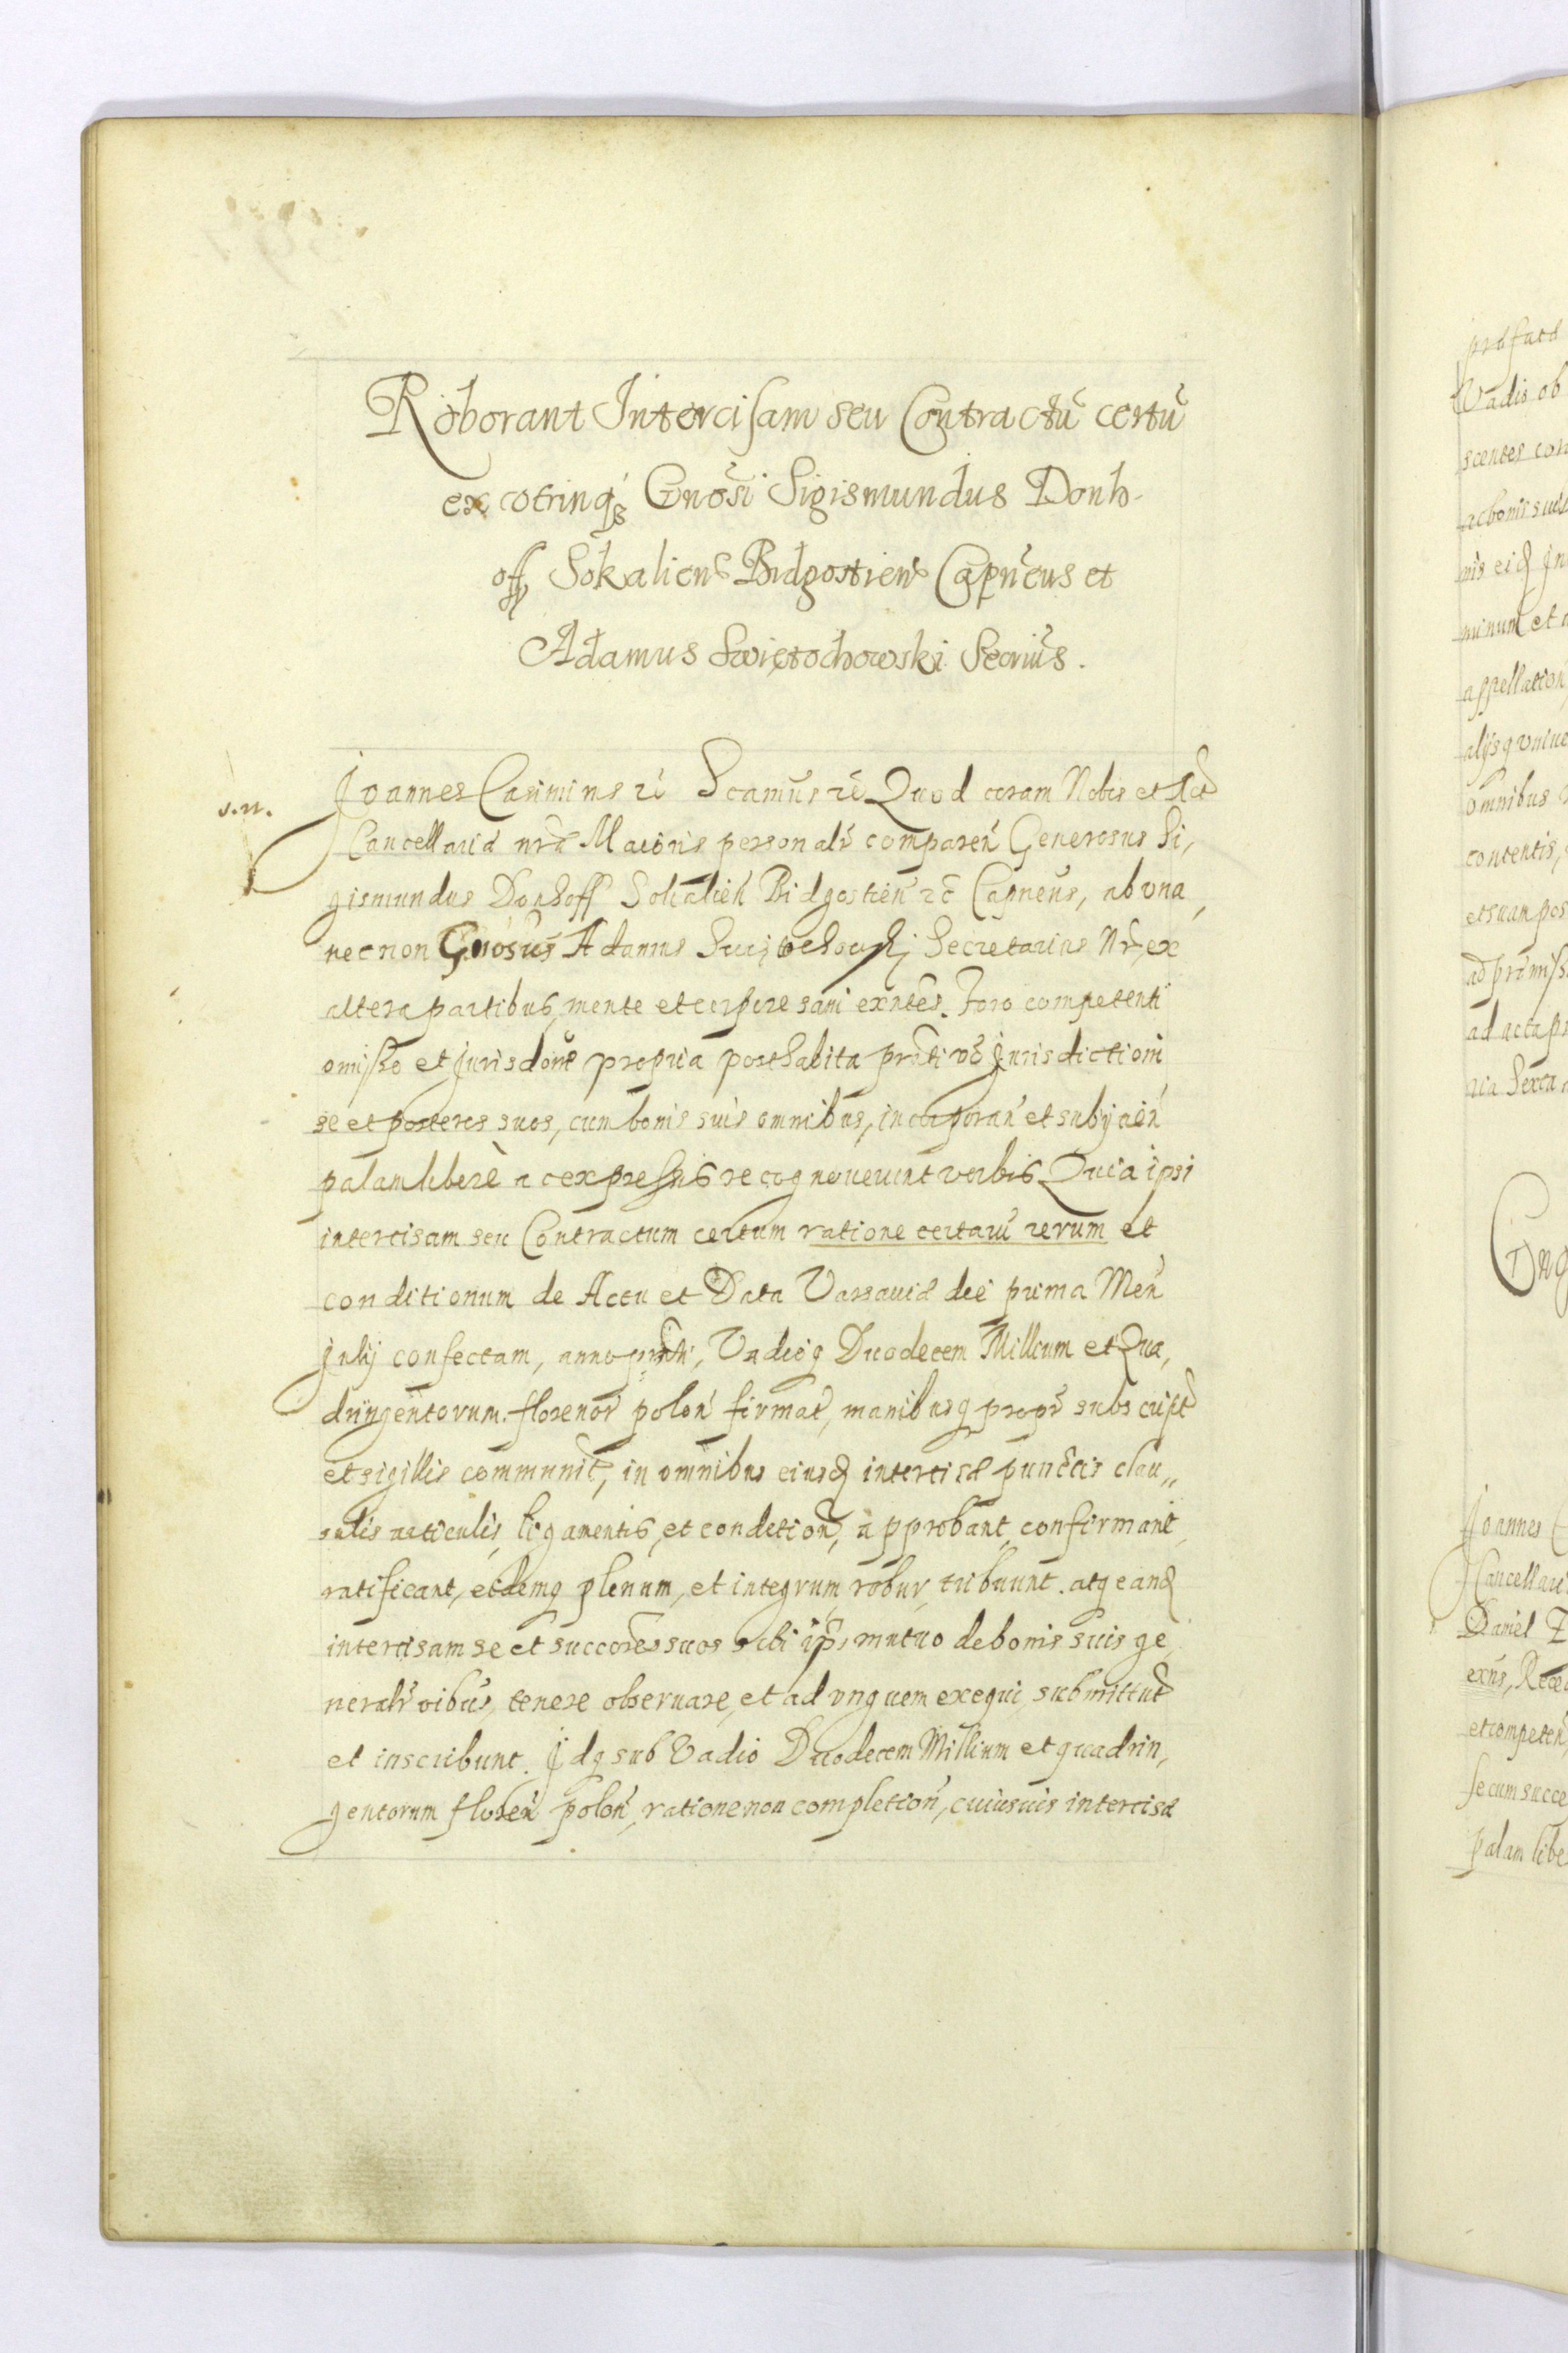 Roborant Intercisam seu Contractū certū
ex vtrinq₃ Gnōsi Sigismundus Donh-
off, Sokalien̄ Bidgostien̄ Capn̄eus et
Adamus Swiętochowski Secriūs.
s.n.
Joannes Casimirus rc̄ Scamūs rc̄ Quod coram Nobis et Act
Cancellaria nrā Maioris personalr̄ comparen̄ Generosus Si,
gismundus Donhoff Sokalien̄ Bidgostien̄ rc̄ Capneūs, ab vna,
nec non Gnosūs Adamus Swiętochowskj Secretarius Nr̄, ex
altera partibus, mente et corpore sani exn̄tes. Foro competenti
omisso et Jurisdōne propria posthabita prn̄ti vō Jurisdictioni
se et posteros suos, cum bonis suis omnibus, incorporan̄ et subijcien̄
palam liberè ac expressis recognouerunt verbis Quia ipsi
intercisam seu Contractum certum ratione certarū rerum et
conditionum de Actu et Data Varsauiæ die prima Men̄
Julij confectam, anno prn̄ti, Vadioq Duodecem Millium et Qua,
dringentorum florenor̄ polon̄ firmat̄, manibusq propr̄ subscript
et sigillis communit̄, in omnibus eiusd intercisæ punctis clau,,
sulis articulis, ligamentis, et condition̄, approbant, confirmant,
ratificant, eidemq plenum, et integrum, robur, tribuunt. atqe eand
intercisam se et succōres suos sibi ips̄i mutuo de bonis suis ge,
neralr̄ oibūs, tenere obseruare, et ad vnguem exequi, submittunt
et inscribunt. Jdq sub Vadio Duodecem Millium et quadrin,
gentorum floren̄ polon̄, ratione non completion̄, cuiusuis intercisæ
præfatæ
Vadis ob
scentes con
ac bonis suis
nis eid Jn
minum et a
appellation
alijsq vniue
omnibus
contentis,
et suam pos
ad præmiss
ad acta pr
ria Sexta
Joannes C
Cancellari
Daniel
et competen
se cum succe
palam libe